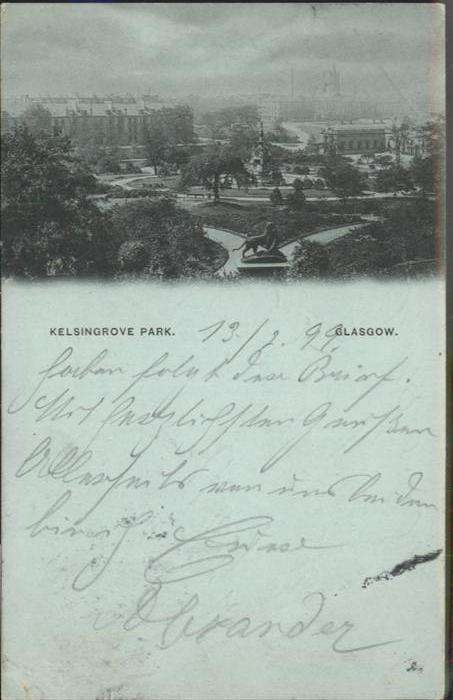 KELSINGROVE PARK. 13/2. 99. GLASGOW.
soeben folgt der Brief.
Mit herzlichsten Grüßen
Allerseits von uns beiden
bin ich
Alexander
2.